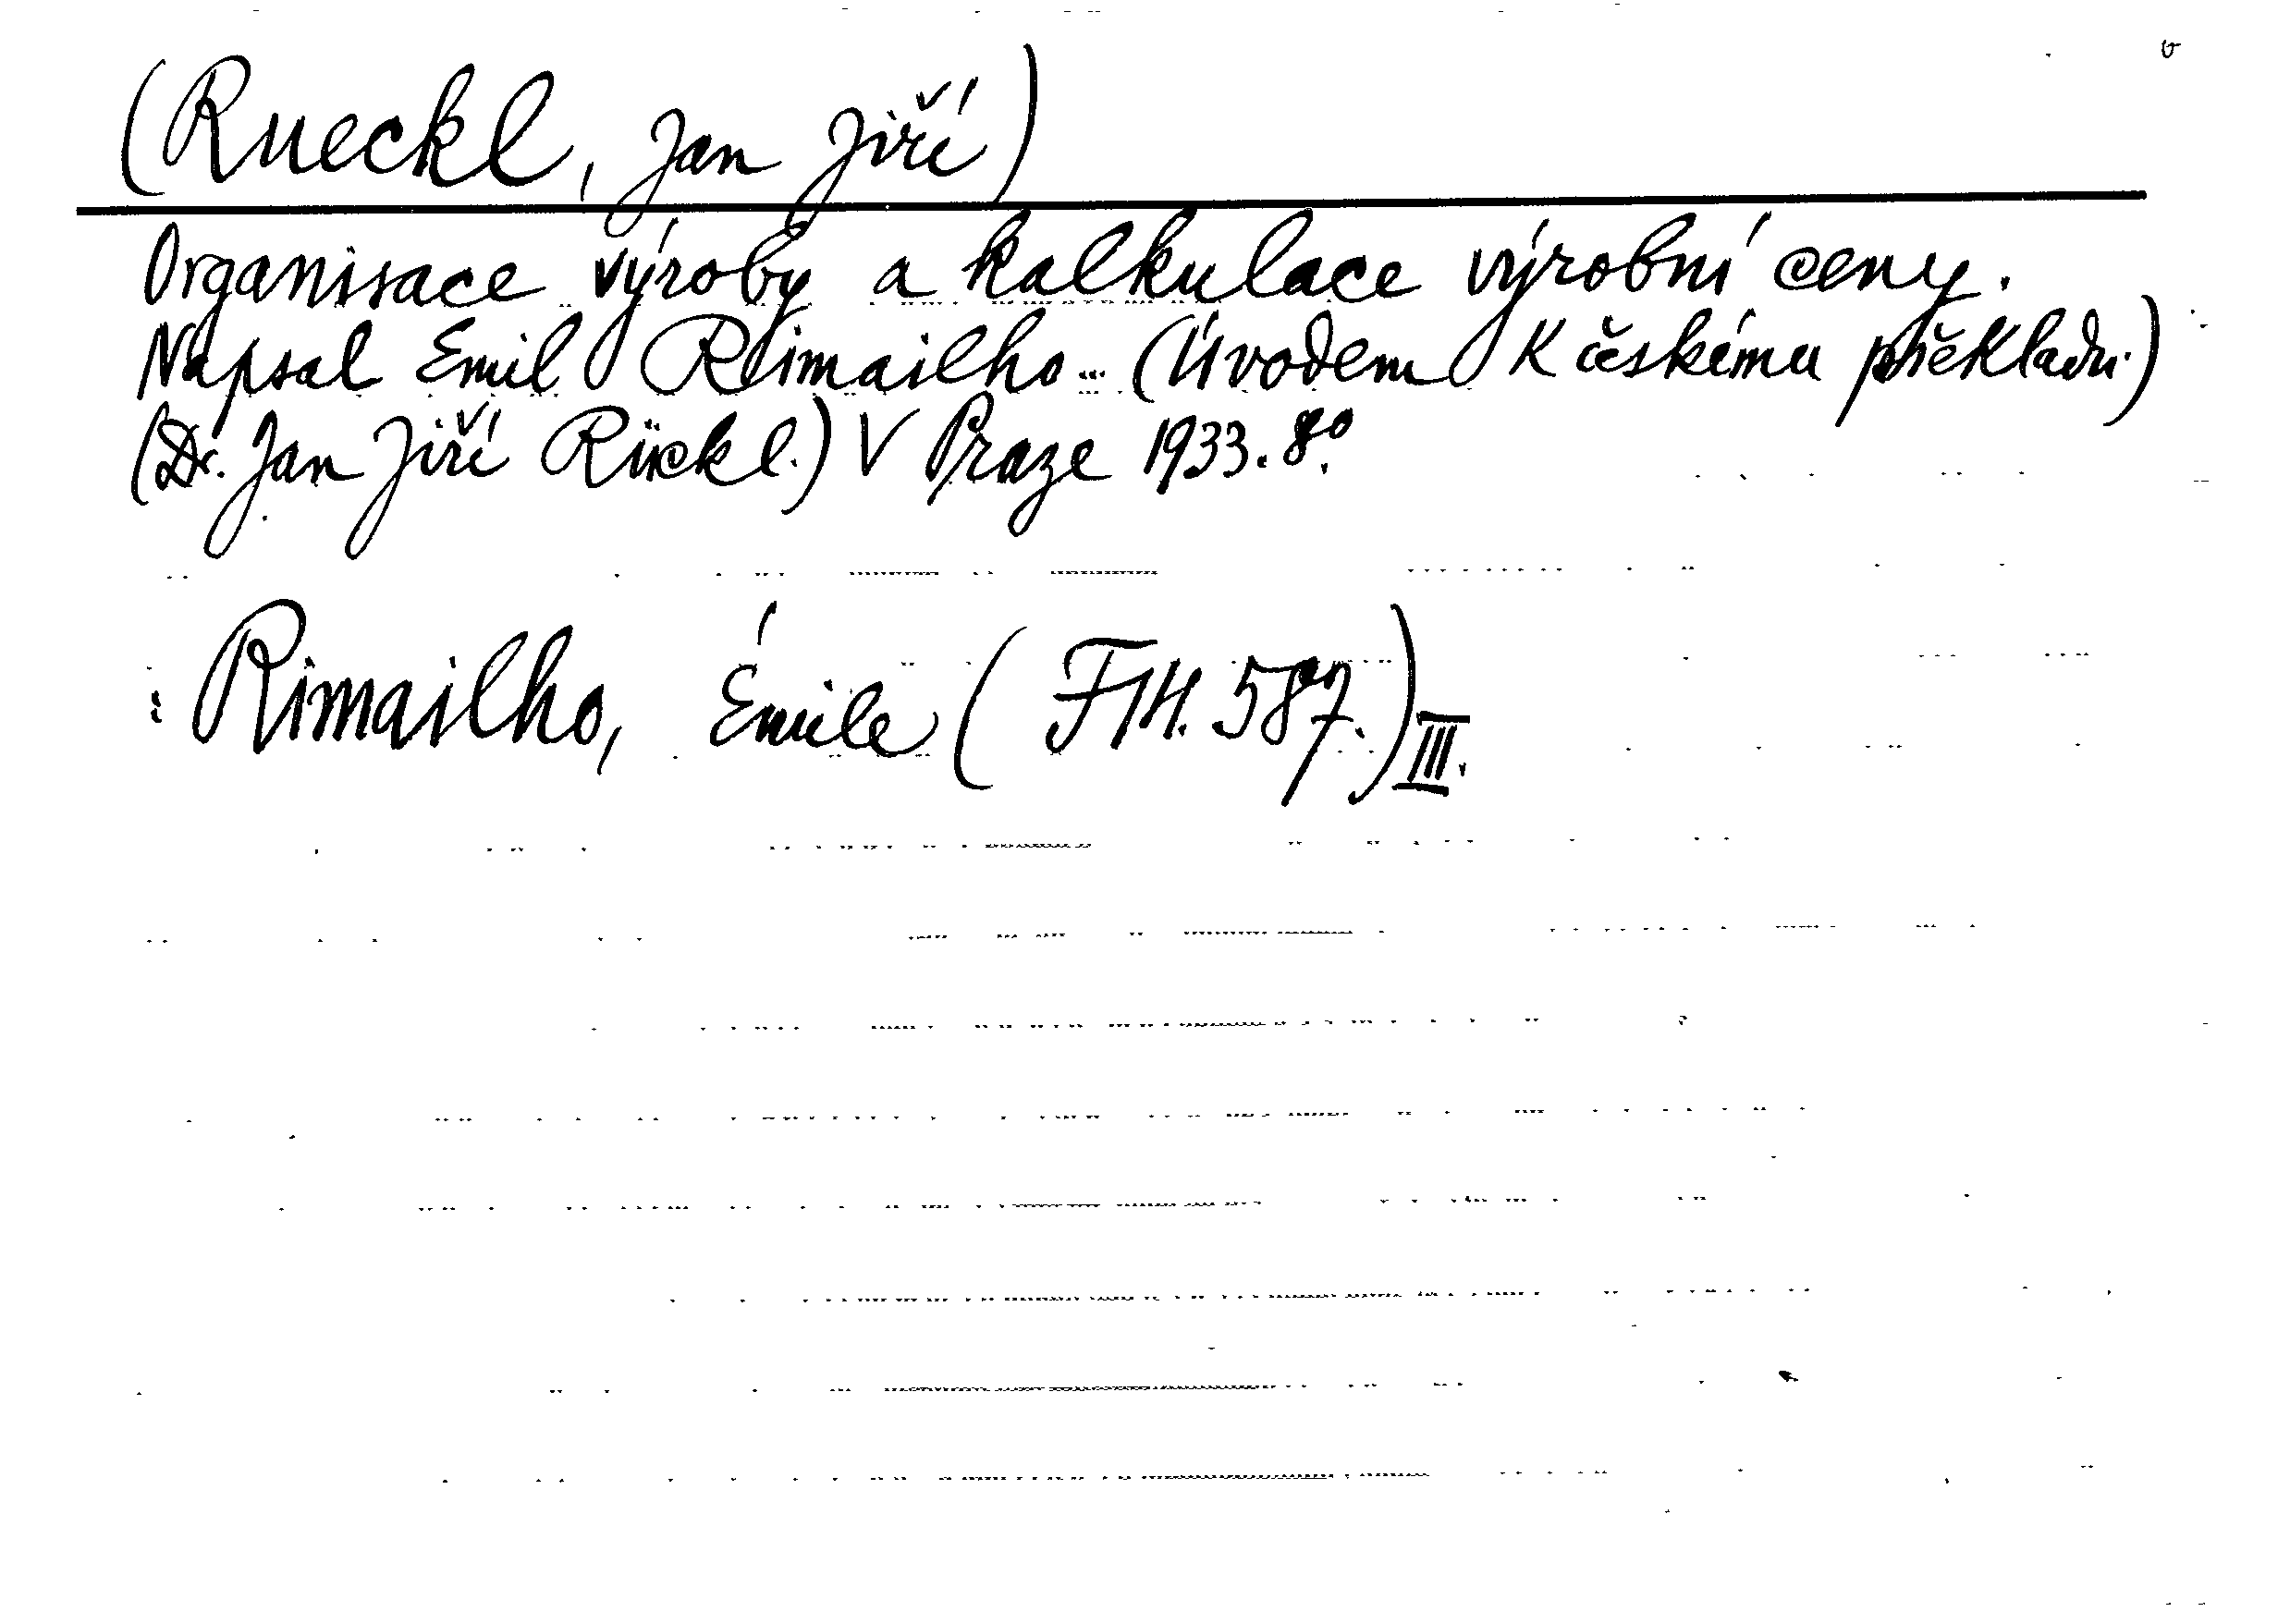 (Rueckl, Jan Jiří)
Organisace výroby a kalkulace výrobní ceny.
Napsal Emil Rimailho... (Úvodem k českému překladu.)
(Dr. Jan Jiří Rückl.) V Praze 1933. 8°.
: Rimailho, Émile (F 14. 587.) III.